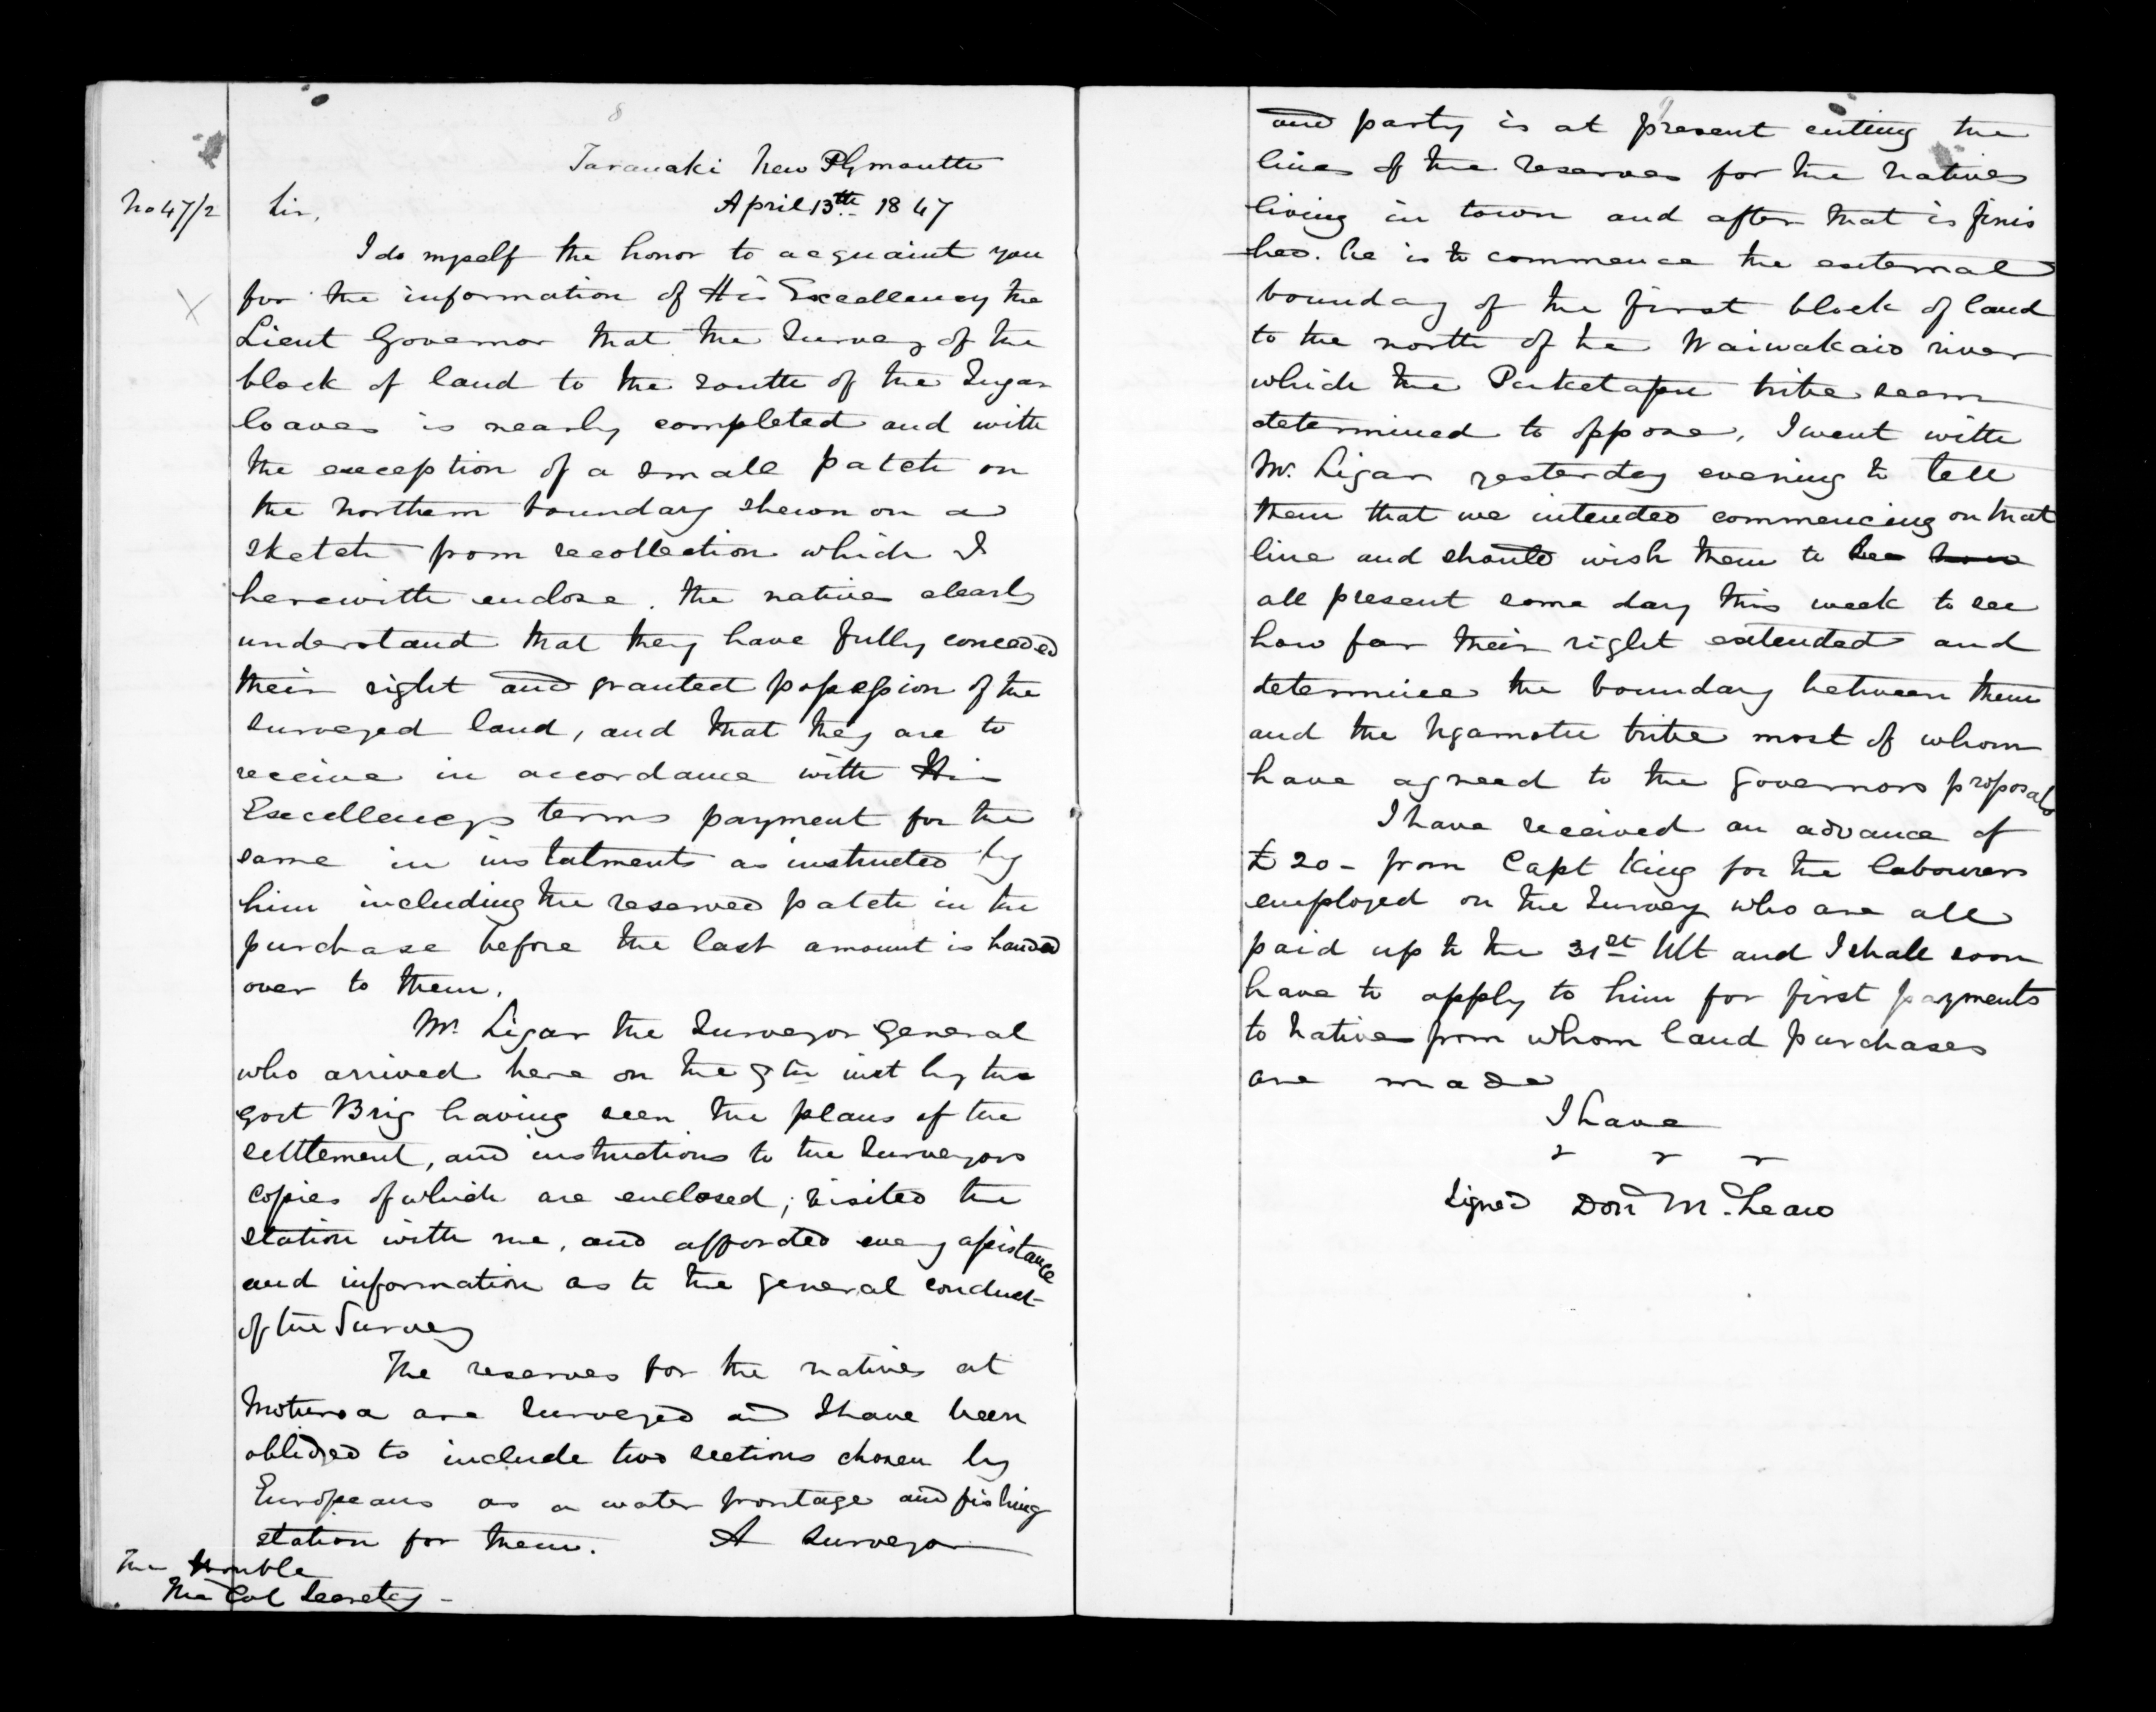 8
Taranaki New Plymouth
No 47/2 Sir, April 13th 1847
I do myself the honor to acquaint you
for the information of His Excellency the
Lieut Governor that the Survey of the
block of land to the South of the Sugar
loaves is nearly completed and with
the exception of a small patch on
the northern boundary shewn on a
sketch from recollection which I
herewith enclose. the natives clearly
understand that they have fully conceeded
their right and granted possession of the
surveyed land, and that they are to
receive in accordance with His
Excellencys terms payment for the
same in instalments as instructed by
him including the reserved patch in the
purchase before the last amount is handed
over to them.
Mr. Ligar the Surveyor General
who arrived here on the 9th inst by the
Govt Brig having seen the plans of the
settlement, and instructions to the Surveyors
copies of which are enclosed; visited the
station with me, and afforded every assistance
and information as to the general conduct
of the Survey
The reserves for the natives at
Moturoa are Surveyed and I have been
oblidged to include two sections chosen by
Europeans as a water frontage and fishing
station for them. A Surveyor
The Honble
The Col Secretary -
and party is at present cuting the
lines of the reserves for the natives
living in town and after that is finis
hed. he is to commence the external
boundary of the first block of land
to the north of the Waiwakaio river
which the Puketapu tribe seem
determined to oppose, I went with
Mr. Ligar yesterday evening to tell
them that we intended commencing on that
line and should wish them to be
all present some day this week to see
how far their right extended and
determine the boundary between them
and the Ngamotu tribe most of whom
have agreed to the Governors proposals
I have received an advance of
£20 - from Capt King for the labourers
employed on the Survey who are all
paid up to the 31st Ult and I shall soon
have to apply to him for first payments
to natives from whom land purchases
are made
I have
Signed Don McLean